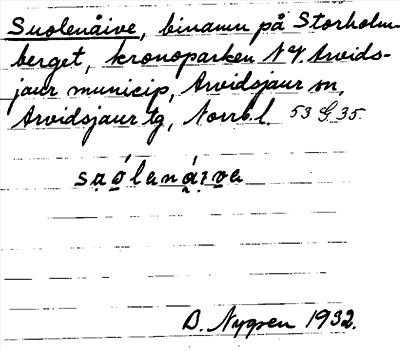 Suolenåive, binamn på Storholm-
berget, kronoparken N Y. Arvids-
jaur municip, Arvidsjaur sn,
Arvidsjaur tg, Norrb. l. 53 G 35.
D. Nygren 1932.